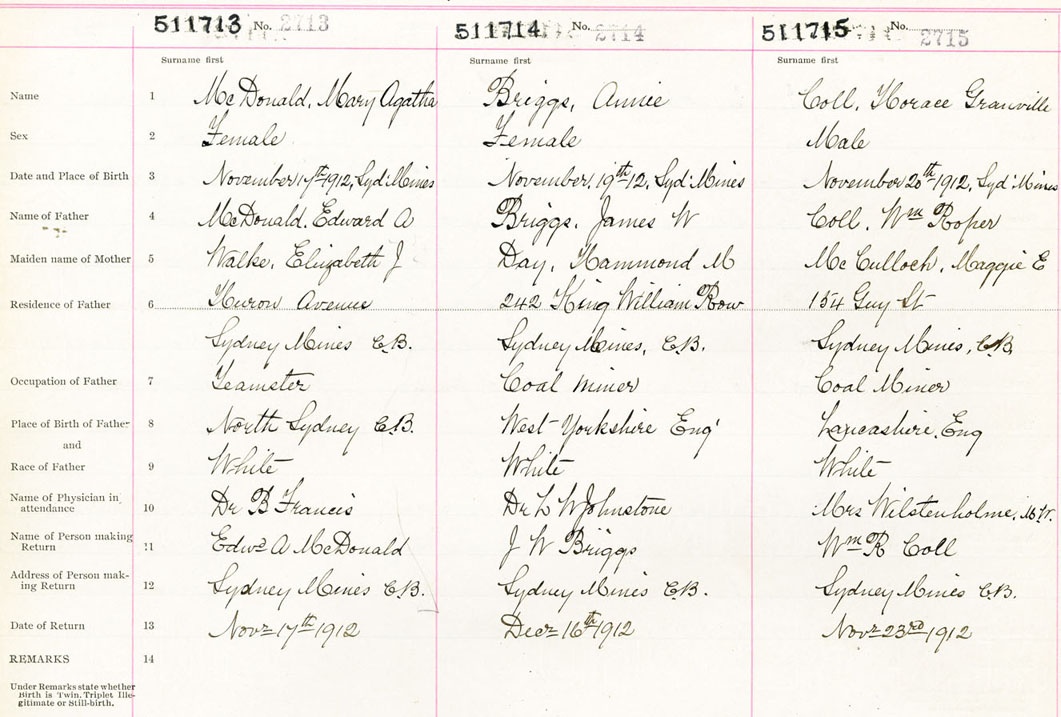 511713 No. 2713 511714 No. 2714 511715 No. 2715
Surname first Surname first Surname first
Name 1 McDonald, Mary Agatha Briggs, Annie Coll, Horace Granville
Sex 2 Female Female Male
Date and Place of Birth 3 November 17th 1912, Syd: Mines November, 19th 12, Syd: Mines November 20th 1912, Syd: Mines
Name of Father 4 McDonald, Edward A Briggs, James W Coll, Wm Roper
Maiden name of Mother 5 Walke, Elizabeth J Day, Hammond M McCulloch, Maggie E
Residence of Father 6 Huron Avenue 242 King William Row 154 Guy St
Sydney Mines C.B. Sydney Mines, C.B. Sydney Mines, C.B.
Occupation of Father 7 Teamster Coal Miner Coal Miner
Place of Birth of Father 8 North Sydney C.B. West Yorkshire Eng' Lancashire, Eng
and
Race of Father 9 White White White
Name of Physician in
attendance 10 Dr B Francis Dr L W Johnstone Mrs Wilstenholme, M.W.
Name of Person making
Return 11 Edwd A McDonald J W Briggs Wm R Coll
Address of Person mak-
ing Return 12 Sydney Mines C.B. Sydney Mines C.B. Sydney Mines C.B.
Date of Return 13 Novr 17th 1912 Decr 16th 1912 Novr 23rd 1912
REMARKS 14
Under Remarks state whether
Birth is Twin, Triplet Ille-
gitimate or Still-birth.